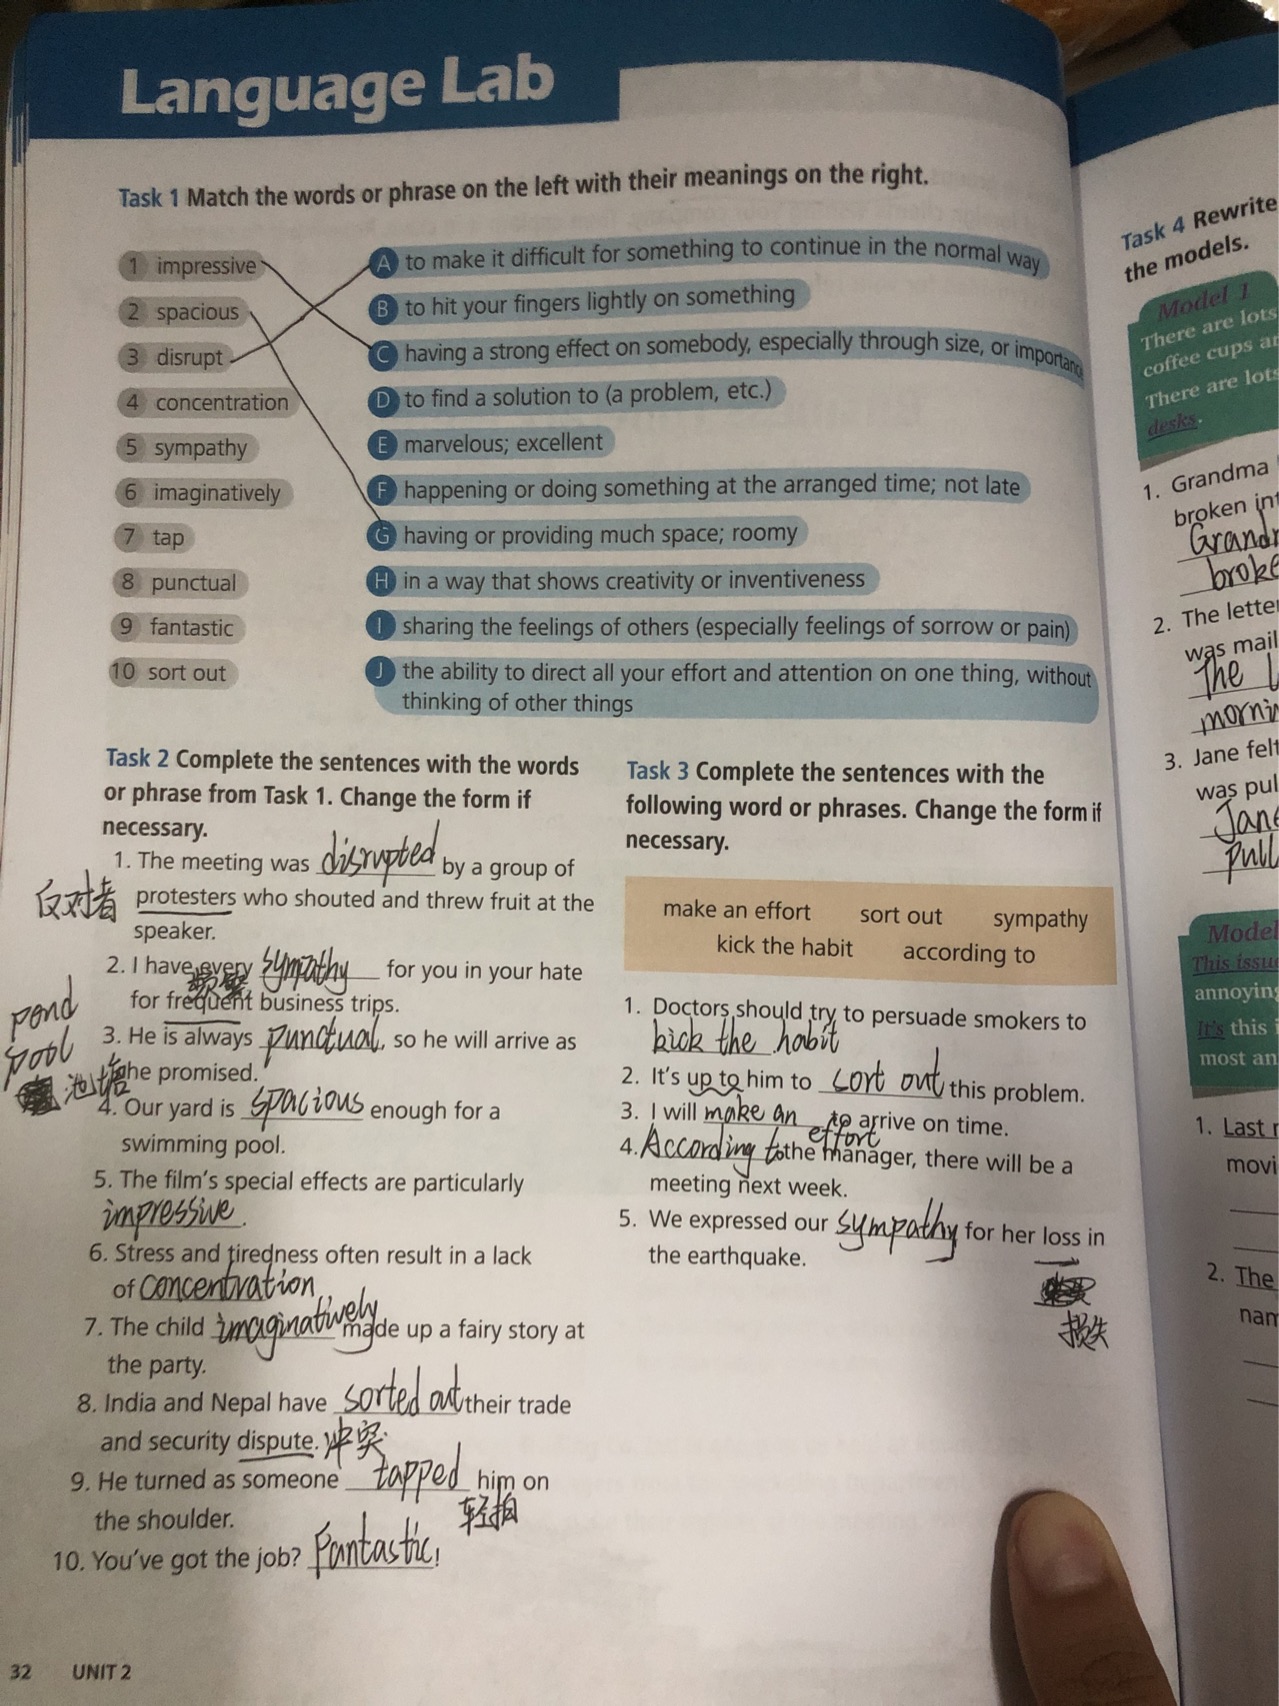 Language Lab
Task 1 Match the words or phrase on the left with their meanings on the right.
1 impressive
2 spacious
3 disrupt
4 concentration
5 sympathy
6 imaginatively
7 tap
8 punctual
9 fantastic
10 sort out
A to make it difficult for something to continue in the normal way
B to hit your fingers lightly on something
C having a strong effect on somebody, especially through size, or importance
D to find a solution to (a problem, etc.)
E marvelous; excellent
F happening or doing something at the arranged time; not late
G having or providing much space; roomy
H in a way that shows creativity or inventiveness
I sharing the feelings of others (especially feelings of sorrow or pain)
J the ability to direct all your effort and attention on one thing, without
thinking of other things
Task 2 Complete the sentences with the words
or phrase from Task 1. Change the form if
necessary.
1. The meeting was disrupted by a group of
反对者 protesters who shouted and threw fruit at the
speaker.
2. I have every sympathy for you in your hate
for frequent business trips.
pond
3. He is always punctual, so he will arrive as
pool
he promised.
池塘
4. Our yard is spacious enough for a
swimming pool.
5. The film's special effects are particularly
impressive.
6. Stress and tiredness often result in a lack
of concentration.
7. The child imaginatively made up a fairy story at
the party.
8. India and Nepal have sorted out their trade
and security dispute. 冲突
9. He turned as someone tapped him on
轻拍
the shoulder.
10. You've got the job? Fantastic!
Task 3 Complete the sentences with the
following word or phrases. Change the form if
necessary.
make an effort sort out sympathy
kick the habit according to
1. Doctors should try to persuade smokers to
kick the habit
2. It's up to him to sort out this problem.
3. I will make an effort to arrive on time.
4. According to the manager, there will be a
meeting next week.
5. We expressed our sympathy for her loss in
the earthquake.
损失
32 UNIT 2
Task 4 Rewrite
the models.
Model 1
There are lots
coffee cups
There are lots
desks.
1. Grandma
broken
2. The
was
The
3. Jane
was
1. Last
2. The